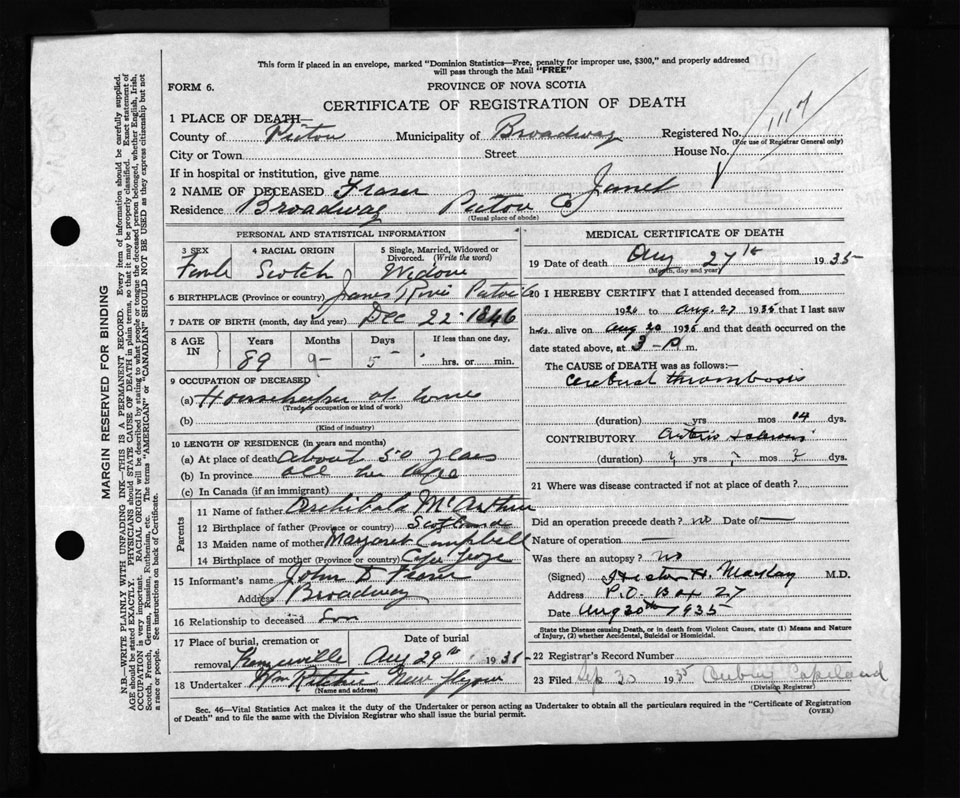 This form if placed in an envelope, marked "Dominion Statistics—Free, penalty for improper use, $300," and properly addressed
will pass through the Mail "FREE"
FORM 6.
PROVINCE OF NOVA SCOTIA
CERTIFICATE OF REGISTRATION OF DEATH
1 PLACE OF DEATH—
County of Pictou Municipality of Broadway Registered No. 1117
(For use of Registrar General only)
City or Town Street House No.
If in hospital or institution, give name
2 NAME OF DECEASED Fraser Janet
Residence Broadway Pictou Co
(Usual place of abode)
PERSONAL AND STATISTICAL INFORMATION
3 SEX 4 RACIAL ORIGIN 5 Single, Married, Widowed or Divorced. (Write the word)
Female Scotch Widow
6 BIRTHPLACE (Province or country)
7 DATE OF BIRTH (month, day and year) Dec 22 - 1846
8 AGE IN Years Months Days If less than one day,
89 9 - 5 hrs. or min.
9 OCCUPATION OF DECEASED
(a) Housekeeper at
(Trade or occupation or kind of work)
(b)
(Kind of industry)
10 LENGTH OF RESIDENCE (in years and months)
(a) At place of death About 50 years
(b) In province all her life
(c) In Canada (if an immigrant)
Parents
11 Name of father Archibald McArthur
12 Birthplace of father (Province or country) Scotland
13 Maiden name of mother Margaret Campbell
14 Birthplace of mother (Province or country) Cape
15 Informant's name John D Fraser
Address Broadway
16 Relationship to deceased Son
17 Place of burial, cremation or removal Date of burial
Aug 29th 1935-
18 Undertaker Wm Ritchie New
(Name and address)
MEDICAL CERTIFICATE OF DEATH
19 Date of death Aug 27th 1935-
(Month, day and year)
20 I HEREBY CERTIFY that I attended deceased from
19 to Aug. 27 1935 that I last saw
h alive on Aug 20 1935 and that death occurred on
date stated above, at 3 - P m.
The CAUSE OF DEATH was as follows:
Cerebral thrombosis
(duration) yrs mos 14 dys.
CONTRIBUTORY
(duration) ? yrs ? mos ? dys.
21 Where was disease contracted if not at place of death?
Did an operation precede death? no Date of —
Nature of operation —
Was there an autopsy? no
(Signed) Hector H. MacKay M.D.
Address P.O. Box 27
Date Aug 30th 1935
State the Disease causing Death, or in death from Violent Causes, state (1) Means and Nature
of Injury, (2) whether Accidental, Suicidal or Homicidal.
22 Registrar's Record Number
23 Filed 30 1935 Copeland
(Division Registrar)
Sec. 46—Vital Statistics Act makes it the duty of the Undertaker or person acting as Undertaker to obtain all the particulars required in the "Certificate of Registration
of Death" and to file the same with the Division Registrar who shall issue the burial permit.
(OVER)
MARGIN RESERVED FOR BINDING
N.B.—WRITE PLAINLY WITH UNFADING INK—THIS IS A PERMANENT RECORD. Every item of information should be carefully supplied.
AGE should be stated EXACTLY. PHYSICIANS should STATE CAUSE OF DEATH in plain terms, so that it may be properly classified. Exact statement of
OCCUPATION is very important. RACIAL ORIGIN will be described by stating to what people or tongue the deceased person belonged, whether English, Irish,
Scotch, French, German, Russian, Ruthenian, etc. The terms "AMERICAN" or "CANADIAN" SHOULD NOT BE USED as they express citizenship but not
a race or people. See instructions on back of Certificate.